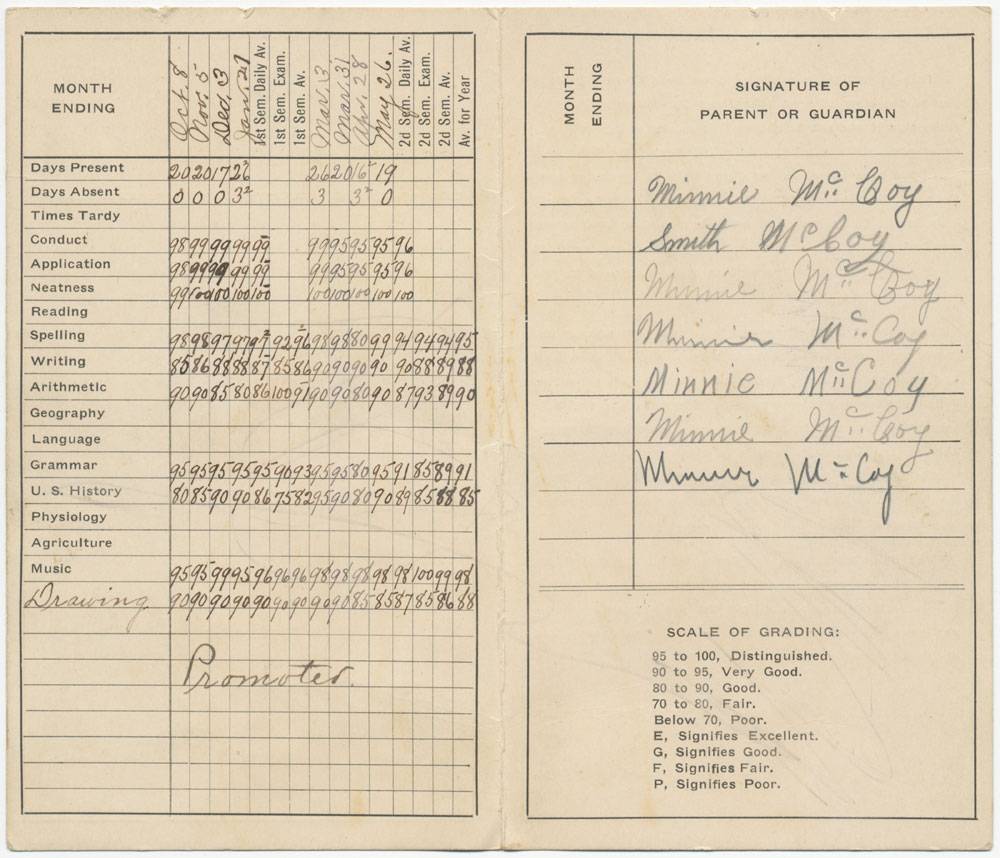 MONTH ENDING Oct. 8 Nov. 5 Dec. 3 Jan. 21 1st Sem. Daily Av. 1st Sem. Exam. 1st Sem. Av. Mar. 3 Mar. 31 Apr. 28 May 26. 2d Sem. Daily Av. 2d Sem. Exam. 2d Sem. Av. Av. for Year
Days Present 20 20 17 26 20 16² 19
Days Absent 0 0 0 3² 3 3² 0
Times Tardy
Conduct 98 99 99 99 99 99 95 95 95 96
Application 98 99 99 99 99 99 95 95 95 96
Neatness 99 100 100 100 100 100 100 100 100 100
Reading
Spelling 98 98 97 97 97² 92 96² 98 98 80 99 94 94 94 95
Writing 85 86 88 88 87 85 86 90 90 90 90 90 88 89 88
Arithmetic 90 90 85 80 86 100 91 90 90 80 90 87 93 89 90
Geography
Language
Grammar 95 95 95 95 95 90 93 95 95 80 95 91 85 89 91
U. S. History 80 85 90 90 86 75 82 95 90 80 90 89 85 88 85
Physiology
Agriculture
Music 95 95 99 95 96 96 96 98 98 98 98 98 100 99 98
Drawing. 90 90 90 90 90 90 90 90 90 85 85 87 85 86 88
Promoted.
MONTH ENDING
SIGNATURE OF
PARENT OR GUARDIAN
Minnie McCoy
Smith McCoy
Minnie McCoy
Minnie McCoy
Minnie McCoy
Minnie McCoy
Minnie McCoy
SCALE OF GRADING:
95 to 100, Distinguished.
90 to 95, Very Good.
80 to 90, Good.
70 to 80, Fair.
Below 70, Poor.
E, Signifies Excellent.
G, Signifies Good.
F, Signifies Fair.
P, Signifies Poor.